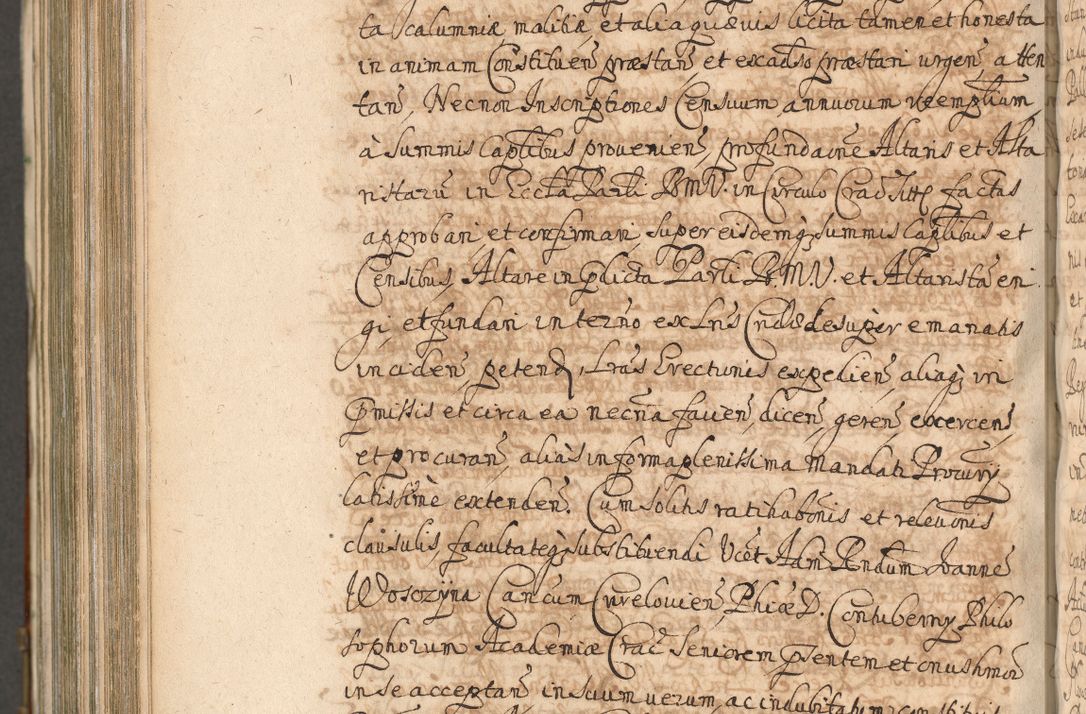 ta calumniæ, malitiæ, et alia quævis licita tamen et honesta
in animam Constituen̄ præstan̄ et ex adso præstari urgen̄ atten
tan̄, Necnon Inscriptiones Censuum annuorum reemptlium,
à Summis Captlibus provenien̄, pro fundaōne Altaris et Alta
ristarū in Eccła Parłi B.M.V. in Circulo Crac̄ Sitt̄ factas
approbari, et confirmari, super eisdemq; summis captlibus et
Censibus, Altare in pdicta Parłi B.M.V. et Altaristā eri
gi, et fundari in termo ex Lr̄is Cndæ desuper emanatis
inciden̄, petend, Lr̄as Erectionis expedien̄ aliaq; in
Pmissis et circa ea necr̄ia facien̄, dicen̄, geren̄, excercen̄,
et procuran̄, aliàs in forma plenissima Mandati Procury
latissimè extenden̄. Cum solitis ratihabōnis et relevōnis
clausulis, facultateq; substituendi Vcet Adm Rndum Joannē
Woszczyna Cancum Curelovien̄, Phiæ D. Contuberny Philo
sophorum Academiæ Crac̄ Seniorem psentem et onus hmōi
in se acceptan̄ in suum verum, ac indubitatum constituis